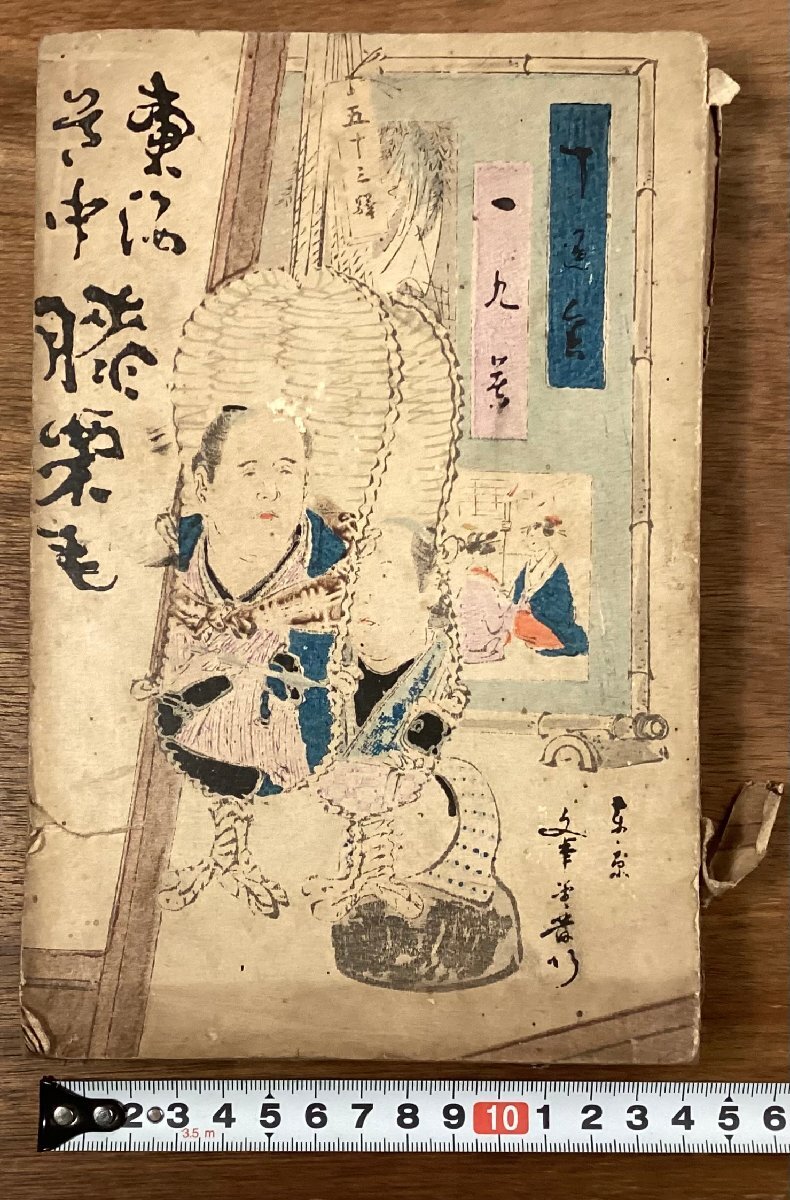 東海
道中
膝栗毛
五十三驛
十返舎
一九著
東京
文事堂發行
2 3 4 5 6 7 8 9 10 1 2 3 4 5 6
3.5 m